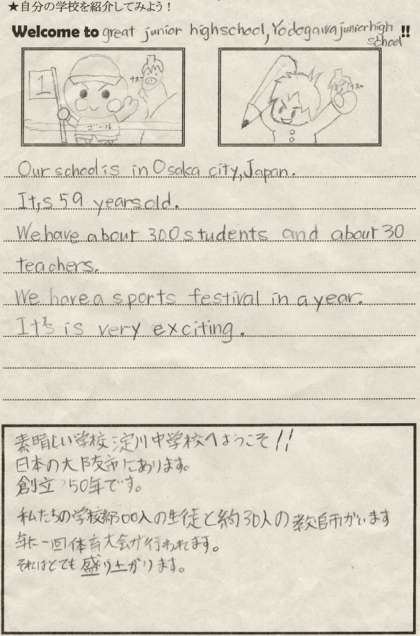 ★自分の学校を紹介してみよう！
Welcome to great junior highschool, Yodogawa junior high school !!
1
Our school is in Osaka city, Japan.
It,s 59 years old.
We have about 300 students and about 30
teachers.
We have a sports festival in a year.
It's is very exciting.
素晴しい学校 淀川中学校へようこそ!!
日本の大阪市にあります。
創立 50年です。
私たちの学校 00人の生徒と約30人の教師がいます
年に一回体育大会が行われます。
それはとても盛り上がります。